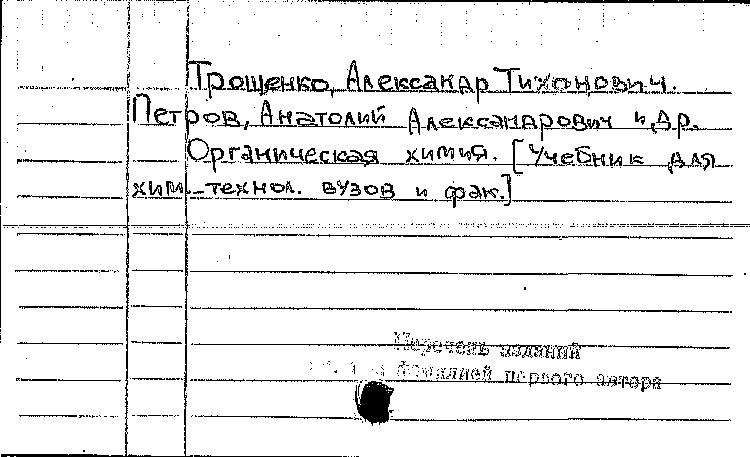 Трощенко, Александр Тихонович.
Петров, Анатолий Александрович и др.
Органическая химия. [Учебник для
хим.-технол. вузов и фак.]
Перечень изданий
фамилией первого автора